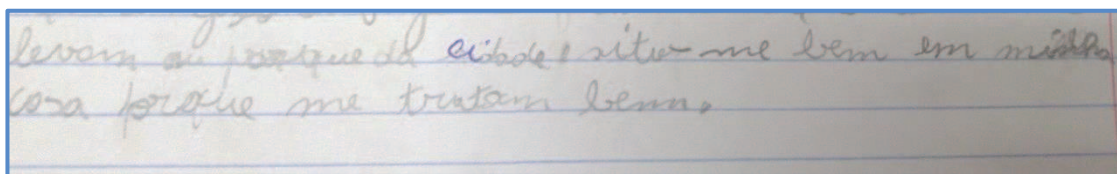 levam ao parque da cidade, situ-me bem em minha
casa porque me tratam bem.